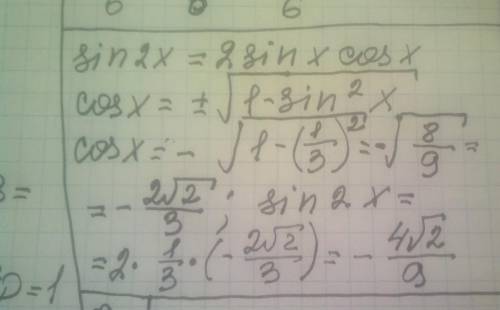 6 0 6
sin2x = 2sin x cosx
cosx = ± √(1-sin²x)
cosx = - √(1-(1/3)²) = -√(8/9) =
= - 2√2/3 ; sin 2x =
= 2 · 1/3 · (- 2√2/3) = - 4√2/9
=
D=1